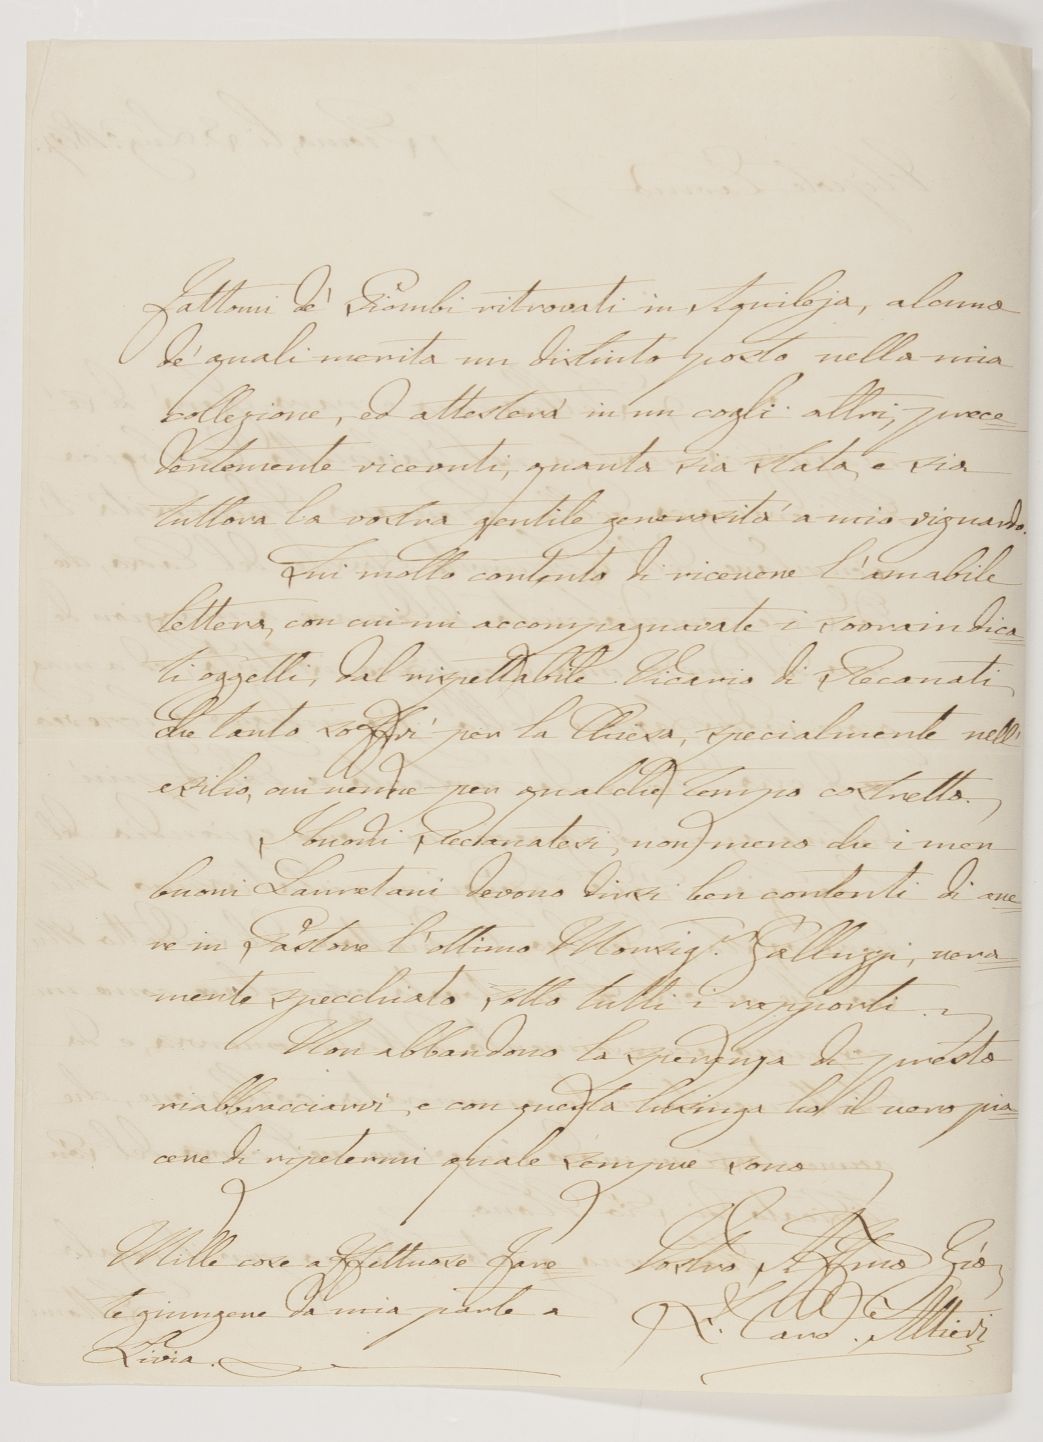 fattomi de' Piombi ritrovati in Aquileja, alcuno
de' quali merita un distinto posto nella mia
collezione, ed attesterà in un cogli altri, prece=
dentemente ricevuti, quanta sia stata, e sia
tuttora la vostra gentile generosità a mio riguardo.
Fui molto contento di ricevere l'amabile
lettera, con cui mi accompagnavate i sovraindica=
ti oggetti, dal rispettabile Vicario di Recanati
che tanto soffrì per la Chiesa, specialmente nell'
esilio, cui venne per qualche tempo costretto.
I buoni Recanatesi, non meno che i men
buoni Lauretani devono dirsi ben contenti di ave=
re in Pastore l'ottimo Monsigr. Galluzzi, vera=
mente specchiato sotto tutti i rapporti.
Non abbandono la speranza di presto
riabbracciarvi, e con questa lusinga ho il vero pia=
cere di ripetermi quale sempre sono
Mille cose affettuose fare=
te giungere da mia parte a
Livia.
Vostro Affmo Zio
L. Card. Altieri